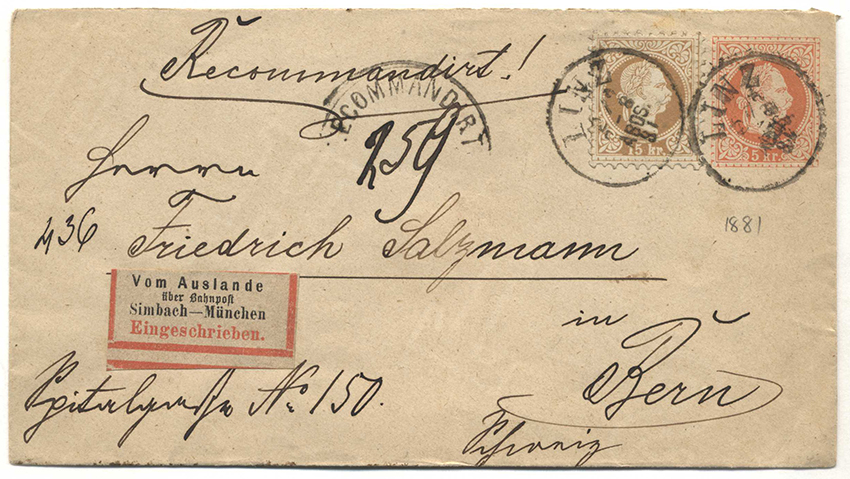 Recommandirt!
RECOMMANDIRT
259
LINZ
15 kr.
LINZ
5 kr.
1881
Herrn
436 Friedrich Salzmann
Vom Auslande
über Bahnpost
Simbach—München
Eingeschrieben.
in
Bern
Spitalgasse No. 150.
Schweiz